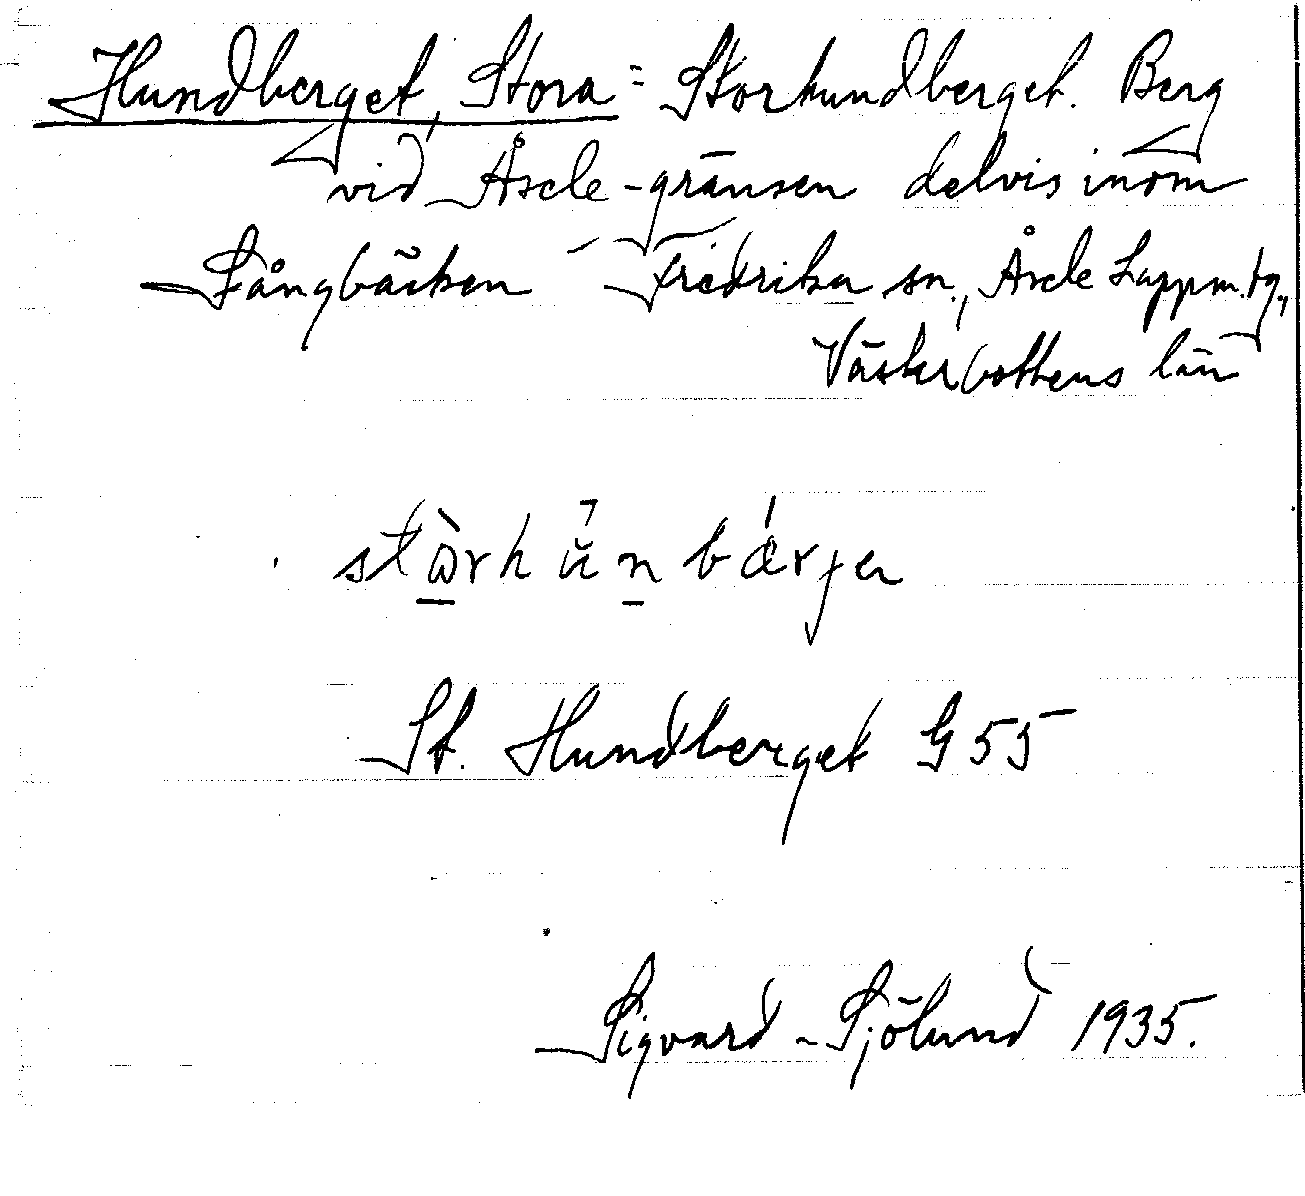 Hundberget, Stora = Storhundberget. Berg
vid Åsele-gränsen delvis inom
Långbäcken Fredrika sn., Åsele Lappm. tg.,
Västerbottens län
St. Hundberget G 55
Sigvard Sjölund 1935.